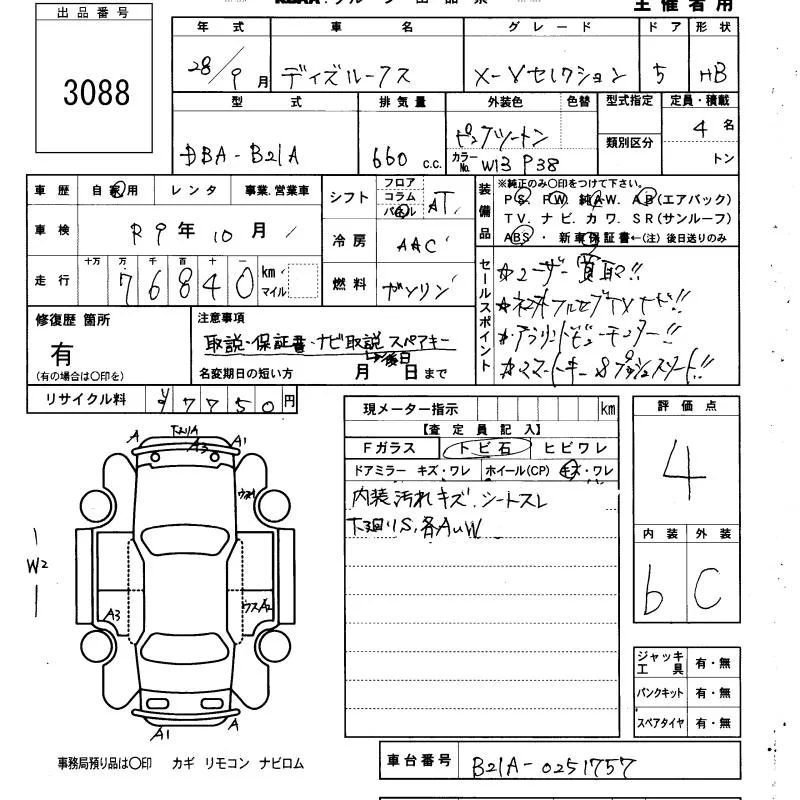 出品番号
3088
主催者用
年式 車名 グレード ドア 形状
28/9月 ディズルークス X-Vセレクション 5 HB
型式 排気量 外装色 色替 型式指定 定員・積載
DBA-B21A 660 c.c. ピンクツートン 類別区分 4名
カラーNo. W13 P38 トン
車歴 自家用 レンタ 事業.営業車
車検 R9年10月
走行 十万 万 千 百 十 一
76840 km マイル
シフト フロア コラム パネル AT
冷房 AAC
燃料 ガソリン
装備品
※純正のみ〇印をつけて下さい。
PS. PW. 純AW. AB(エアバック)
TV. ナビ. カワ. SR(サンルーフ)
ABS・ 新車保証書←(注) 後日送りのみ
セールスポイント
☆ユーザー買取!!
☆ネオトフルセグTVナビ!!
☆アラウンドビューモニター!!
☆スマートキー&プッシュスタート!!
修復歴 箇所
有
(有の場合は〇印を)
注意事項
取説・保証書・ナビ取説 スペアキー
後日
名変期日の短い方 月 日まで
リサイクル料 ¥7750円
現メーター指示 km
【査定員記入】
Fガラス トビ石 ヒビワレ
ドアミラー キズ・ワレ ホイール(CP) キズ・ワレ
内装汚れキズ.シートスレ
下廻りS.各AuW
評価点
4
内装 外装
b C
ジャッキ工具 有・無
パンクキット 有・無
スペアタイヤ 有・無
A 下より1A A3 A1
ウスA1
W2
A3
ウスA2
A1 A
事務局預り品は〇印 カギ リモコン ナビロム
車台番号 B21A-0251757